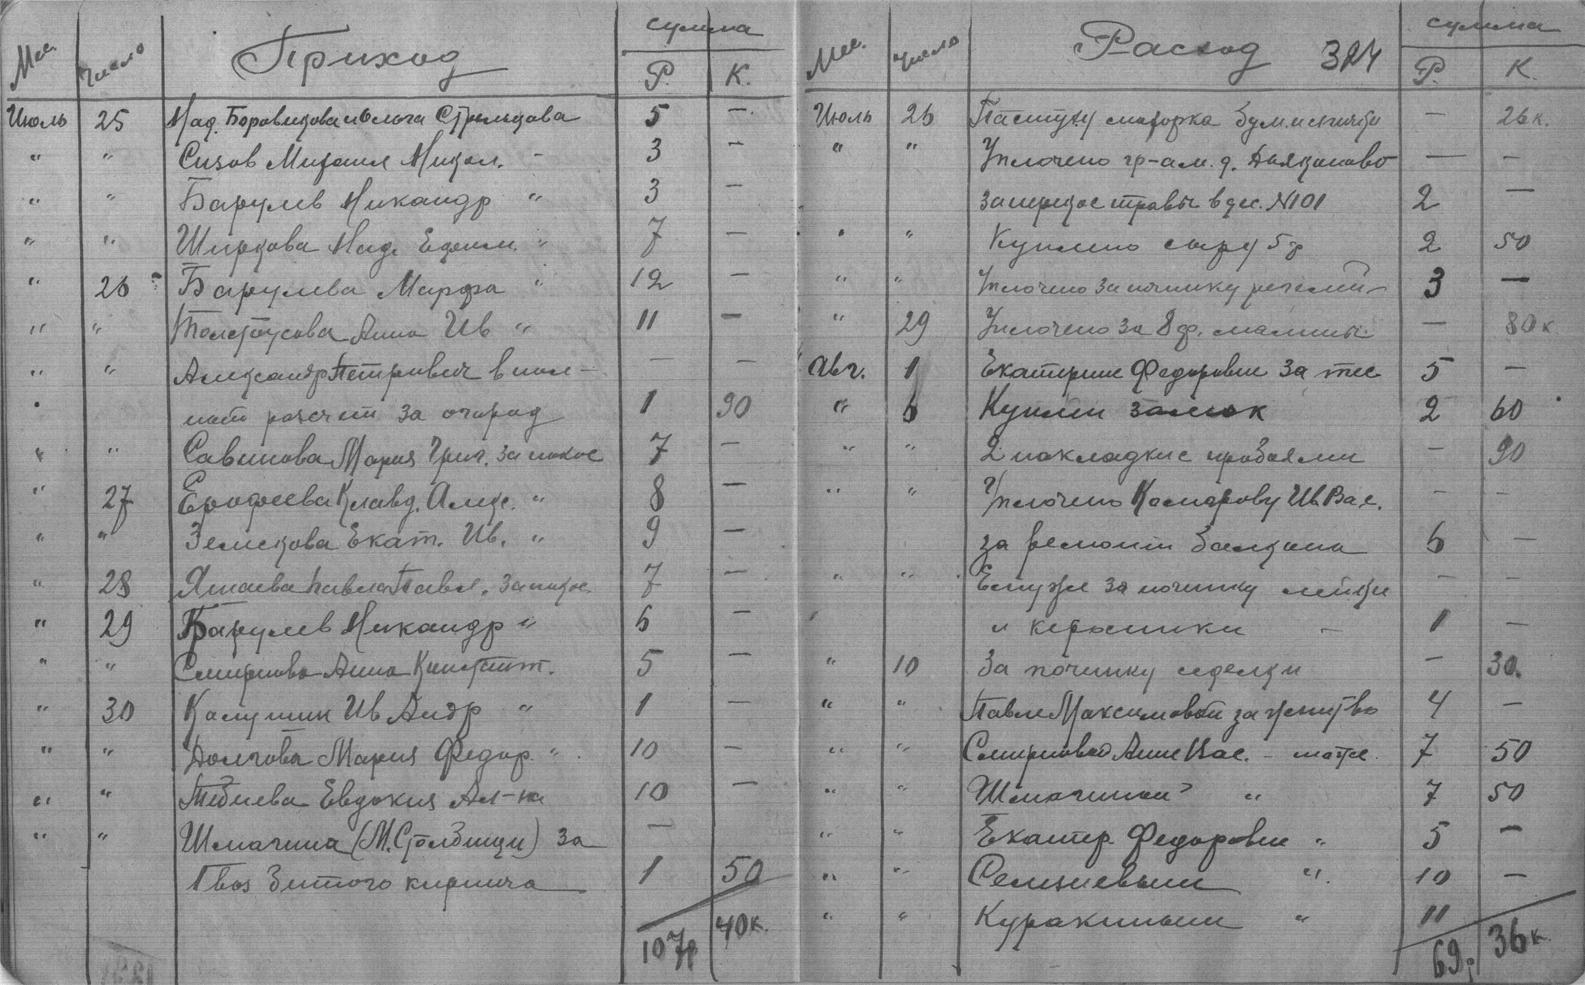 Мес. Число Приход сумма Р. К.
Июль 25 Над. Боровикова и Ольга Стрельцова 5 —
" " Сизов Михаил Никол. - 3 —
" " Барулев Никандр " 3 —
" " Ширкова Над. Ефим. " 7 —
" 26 Барулева Марфа " 12 —
" " Толстоусова Анна Ив " 11 —
" " Александр Петрович в пол- — —
ный расчет за огород 1 90
" " Савинова Мария Григ. за покос 7 —
" 27 Ерофеева Клавд. Алекс. " 8 —
" " Земскова Екат. Ив. " 9 —
" 28 Павла Павл. за покос 7 —
" 29 Барулев Никандр " 6 —
" " Смирнова Анна Констант. 5 —
" 30 Калушин Ив Андр " 1 —
" " Долгова Мария Федор. " 10 —
" " Евдокия Ал-на 10 —
" " Шмагина (М. Столбищи) за —
1 воз битого кирпича 1 50
107р 40к.
Мес. Число Расход 324 сумма Р. К.
Июль 26 Пастуху махорка бум. и спички — 26к.
" " Уплочено гр-ам. д. Дьяконово — —
за перекос травы в дес. №101 2 —
" " Куплено сыру 5ф 2 50
" " Уплочено за починку 3 —
" 29 Уплочено за 8 ф. малины — 80к
Авг. 1 Екатерине Федоровне за 5 —
" 6 Купили замок 2 60
" " 2 накладки с пробоями — 90
" " Уплочено Комарову Ив Вас. - -
за ремонт 6 —
" " Ему же за починку лейки - -
и керосинки - 1 —
" 10 За починку седелки — 30.
" " Павле Максимовой за жнитво 4 —
" " Смирновой Анне Вас. - тоже 7 50
" " Шмагиной " 7 50
" " Екатер. Федоровне " 5 —
" " " 10 —
" " Куракиным " 11
69р 36к